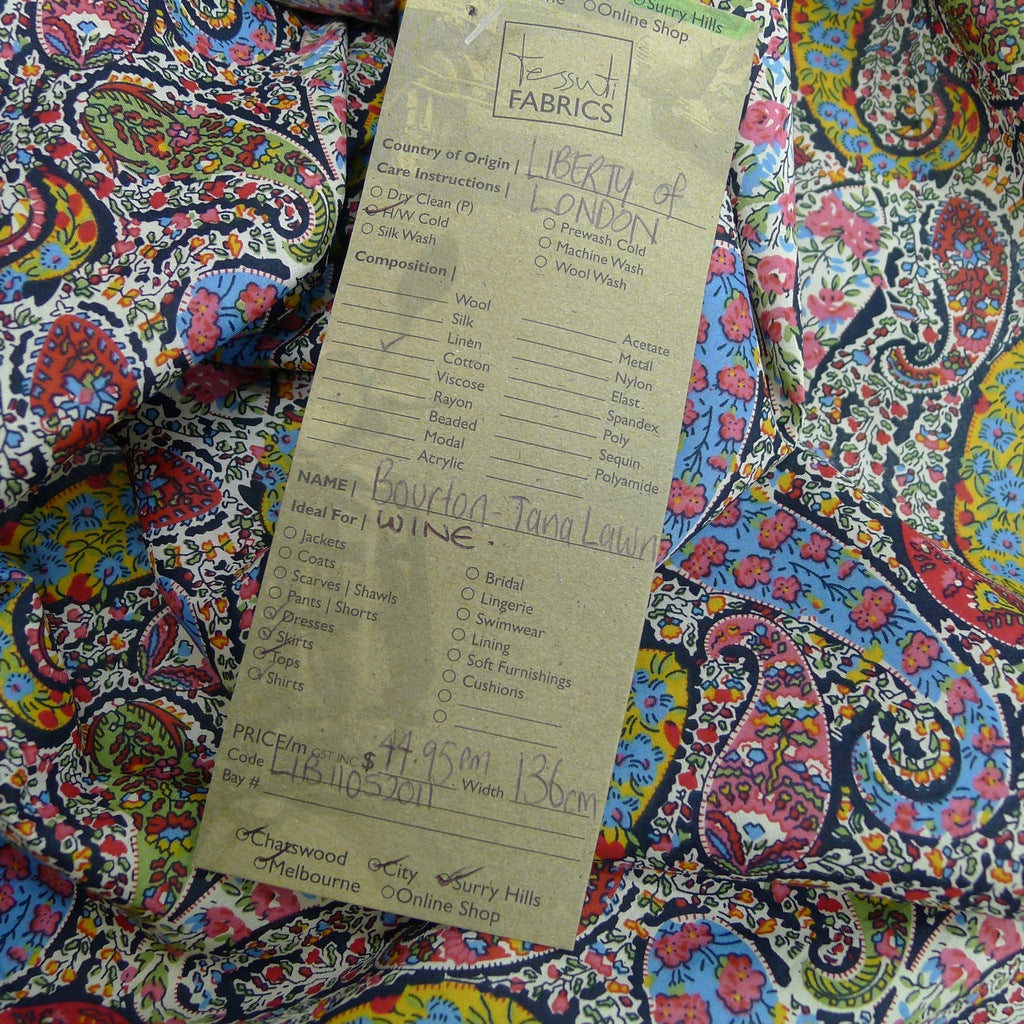 Online Shop
Surry Hills
tessuti
FABRICS
Country of Origin | LIBERTY of
LONDON
Care Instructions |
Dry Clean (P)
H/W Cold
Silk Wash
Prewash Cold
Machine Wash
Wool Wash
Composition |
Wool
Silk
Linen
Cotton
Viscose
Rayon
Beaded
Modal
Acrylic
Acetate
Metal
Nylon
Elast.
Spandex
Poly
Sequin
Polyamide
NAME | Bourton - Tana Lawn
WINE.
Ideal For |
Jackets
Coats
Scarves | Shawls
Pants | Shorts
Dresses
Skirts
Tops
Shirts
Bridal
Lingerie
Swimwear
Lining
Soft Furnishings
Cushions
PRICE/m GST INC $ 44.95pm Width 136cm
Code LIB11052011
Bay #
Chatswood
Melbourne
City
Online Shop
Surry Hills